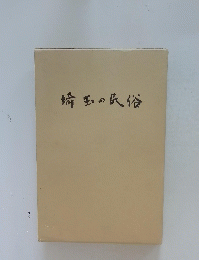 埼玉の民俗